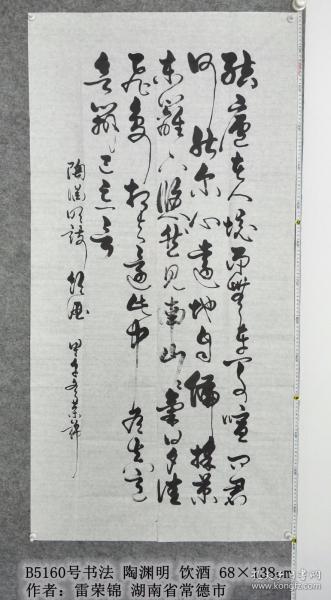 結廬在人境而無車馬喧問君
何能尔心遠地自偏採菊
東籬下悠然見南山山氣日夕佳
飛鳥相與還此中有真意
欲辯已忘言
陶渊明诗 饮酒 甲午荣锦
B5160号书法 陶渊明 饮酒 68×138cm
作者：雷荣锦 湖南省常德市